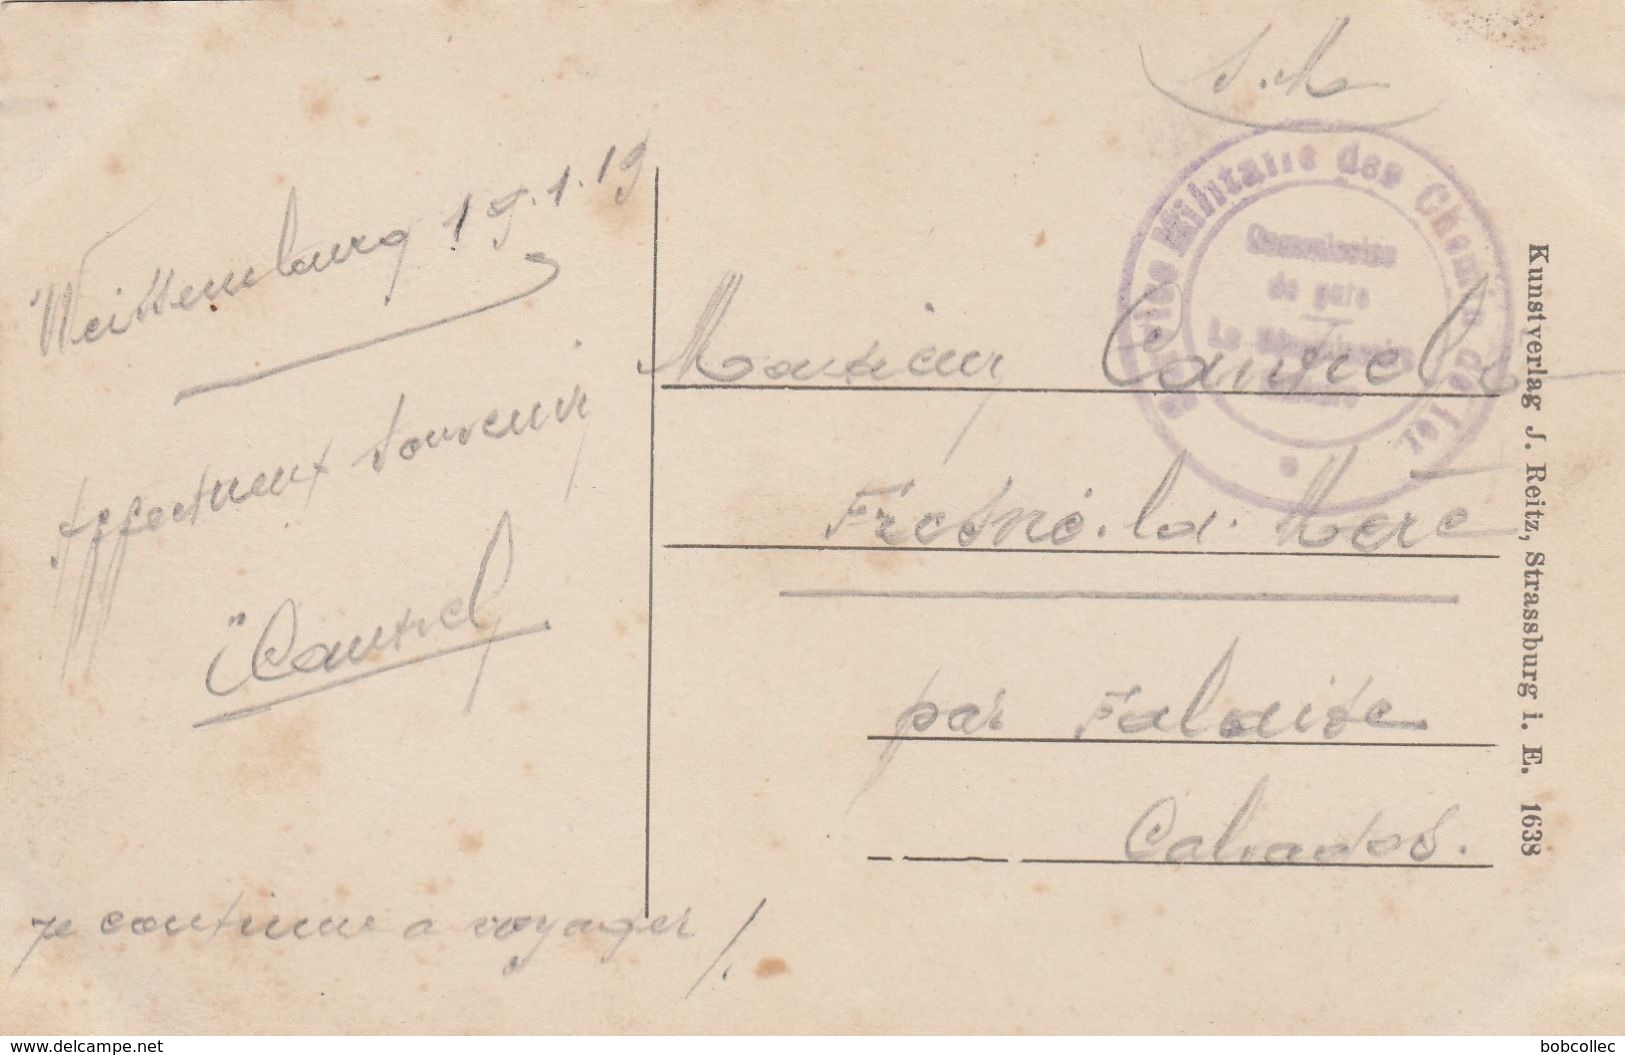 S.M
Weissemburg 19.1.19
Affectueux Souvenir
Cantrel
je continue a voyager !
Militaire des Chemins de fer
Commission
de gare
Monsieur Cantrel
Fresné-la-Mère
par Falaise
Calvados.
Kunstverlag J. Reitz, Strassburg i. E. 1638
www.delcampe.net
bobcollec